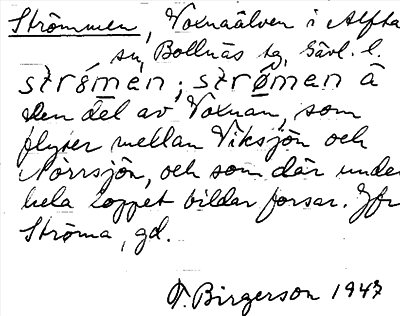 Strömmen, Voxnaälven i Alfta
sn, Bollnäs tg, Gävl. l.
strömen; strömen å
den del av Voxnan, som
flyter mellan Viksjön och
Norrsjön, och som där under
hela loppet bildar forsar. Jfr
Ströma, gd.
T. Birgerson 1947